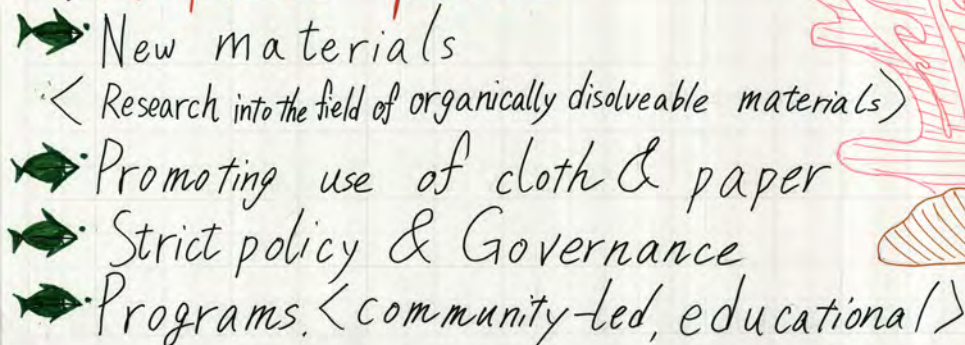 New materials
< Research into the field of organically disolveable materials>
Promoting use of cloth & paper
Strict policy & Governance
Programs. <community-led, educational>